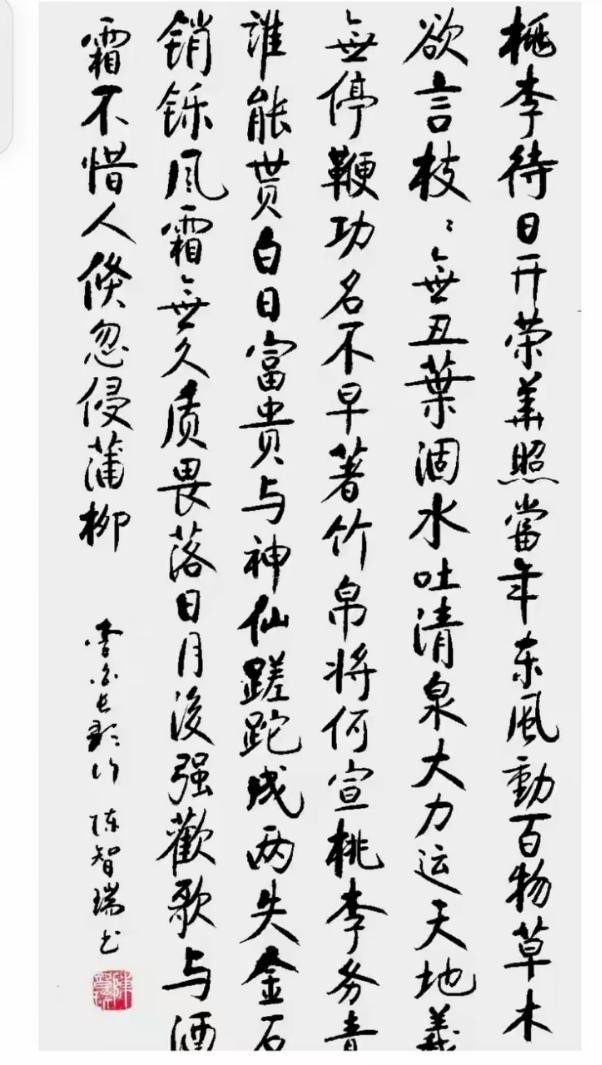 桃李待日开荣華照當年东風動百物草木
欲言枝〻無丑葉涸水吐清泉大力运天地羲
無停鞭功名不早著竹帛将何宣桃李务青
誰能貰白日富貴与神仙蹉跎成两失金石
销铄風霜無久质畏落日月後强歡歌与酒
霜不惜人倏忽侵蒲柳
李白长歌行 陈智瑞书